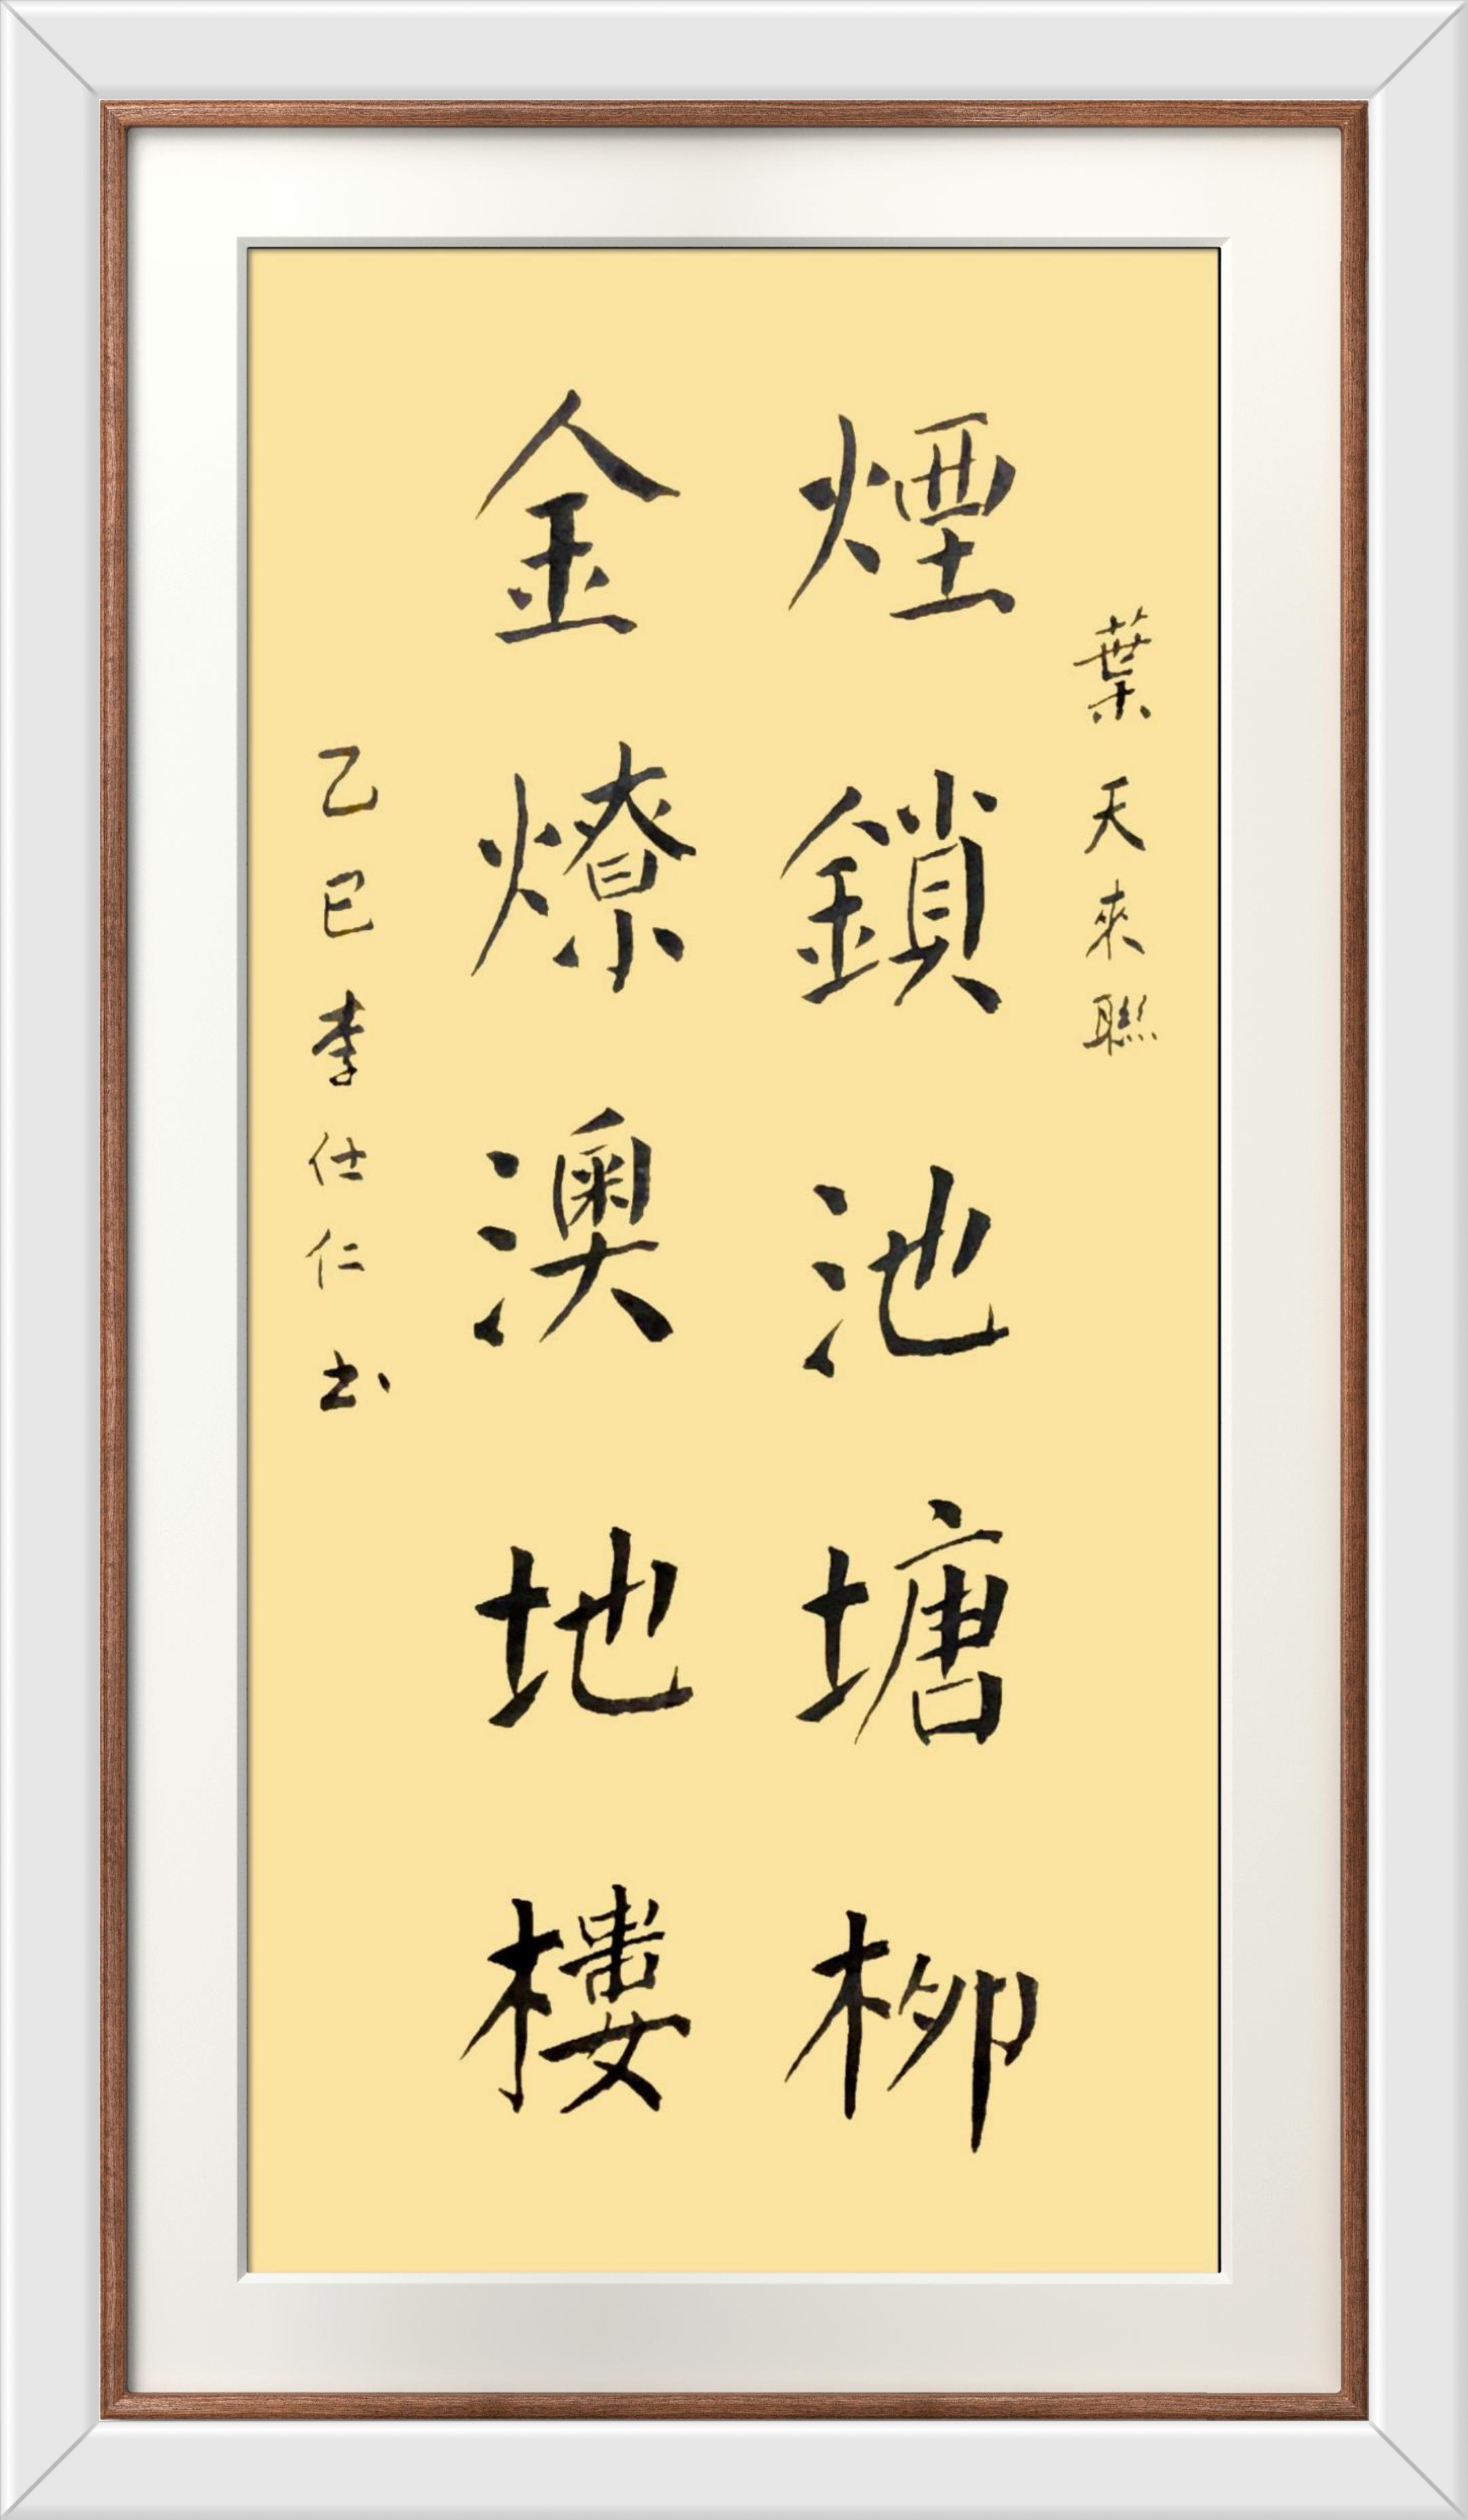 葉天來聯
煙鎖池塘柳
金燎澳地樓
乙巳李仕仁书